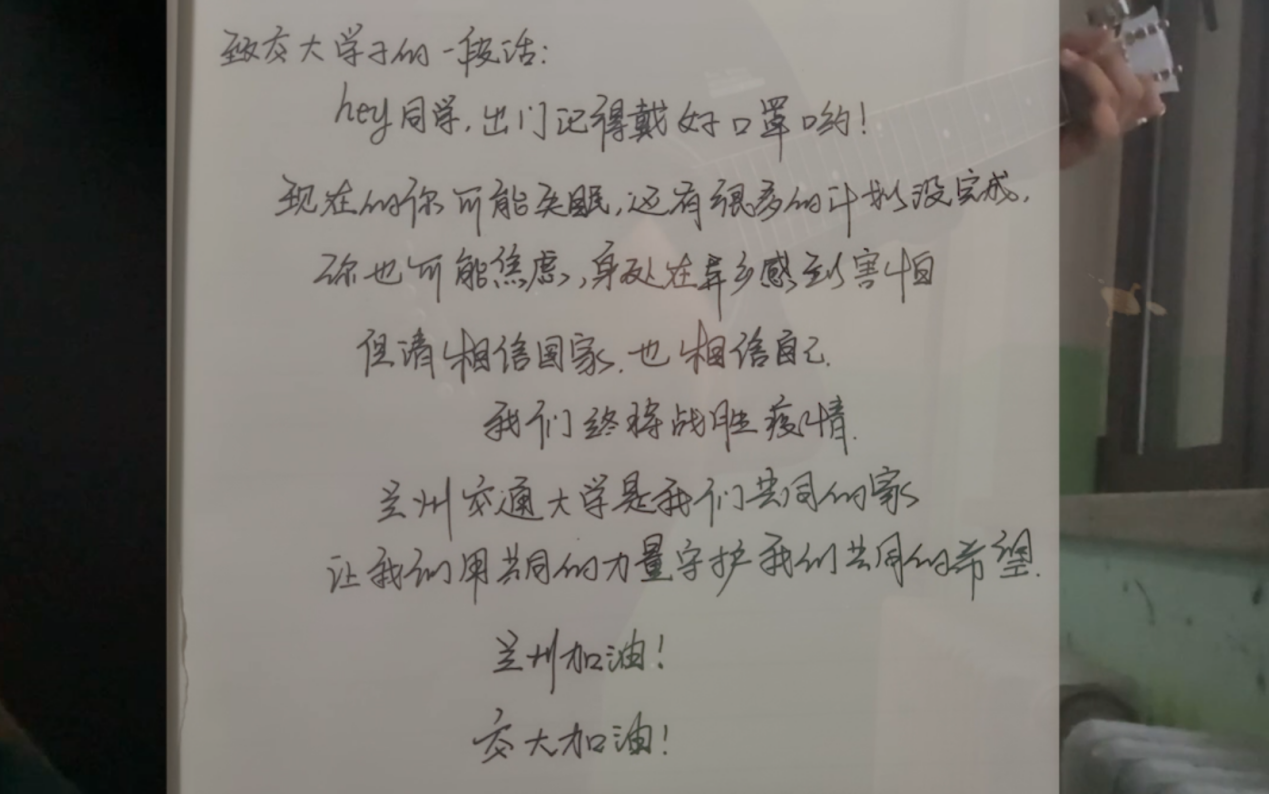 致交大学子的一段话:
hey同学,出门记得戴好口罩哟!
现在的你可能失眠,还有很多的计划没完成,
你也可能焦虑,身处在异乡感到害怕
但请相信国家.也相信自己.
我们终将战胜疫情.
兰州交通大学是我们共同的家
让我们用共同的力量守护我们共同的希望.
兰州加油!
交大加油!